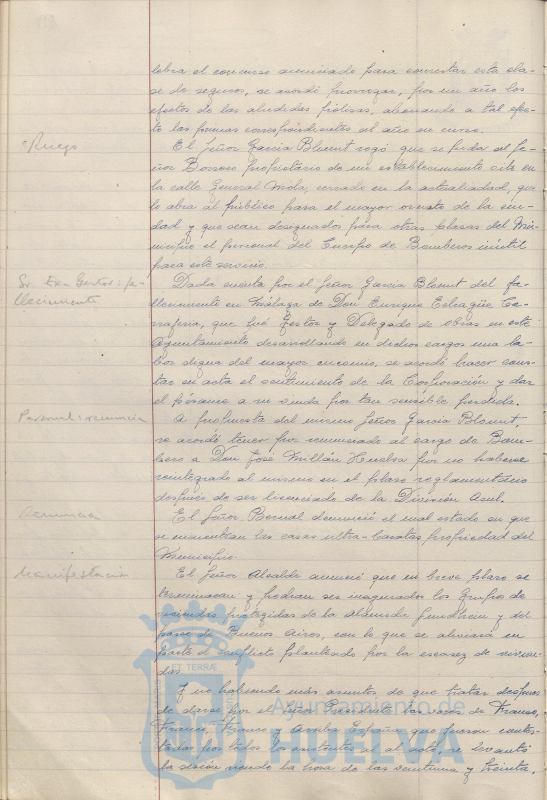 lebra el concurso anunciado para concertar esta cla-
se de seguros, se acordó prorrogar, por un año los
efectos de las aludidas pólizas, abonando a tal efec-
to las primas correspondientes al año en curso.
Ruego
El Señor García Blomut rogó que se pida al Se-
ñor Borrero propietario de un establecimiento sito en
la calle General Mola, cerrado en la actualidad, que
lo abra al público para el mayor ornato de la ciu-
dad y que sean designados para otras plazas del Mu-
nicipio el personal del Cuerpo de Bomberos inútil
para este servicio.
Sr. Ex-Gestor: fa-
llecimiento
Dada cuenta por el Señor García Blomut del fa-
llecimiento en Málaga de Don Enrique
que fué Gestor y Delegado de obras en este
Ayuntamiento desarrollando en dichos cargos una la-
bor digna del mayor encomio, se acordó hacer cons-
tar en acta el sentimiento de la Corporación y dar
el pésame a su viuda por tan sensible pérdida.
Personal: renuncia
A propuesta del mismo Señor García Blomut,
se acordó tener por renunciado al cargo de Bom-
bero a Don José Millán Huelva por no haberse
reintegrado al mismo en el plazo reglamentario
después de ser licenciado de la División Azul.
Denuncia
El Señor Bernal denunció el mal estado en que
se encuentran las casas ultra-baratas propiedad del
Municipio.
Manifestación
El Señor Alcalde anunció que en breve plazo se
terminarán y podrán ser inaugurados los Grupos de
viviendas protegidas de la Alameda Sundheim y del
paseo de Buenos Aires, con lo que se aliviará en
parte el conflicto planteado por la escasez de vivien-
das.
Y no habiendo más asuntos de que tratar después
de darse por el Señor Presidente las voces de Franco,
Franco, Franco y Arriba España que fueron contes-
tadas por todos los asistentes al acto, se levantó
la sesión siendo la hora de las veintiuna y treinta,
ET TERRAE
Ayuntamiento de
HUELVA